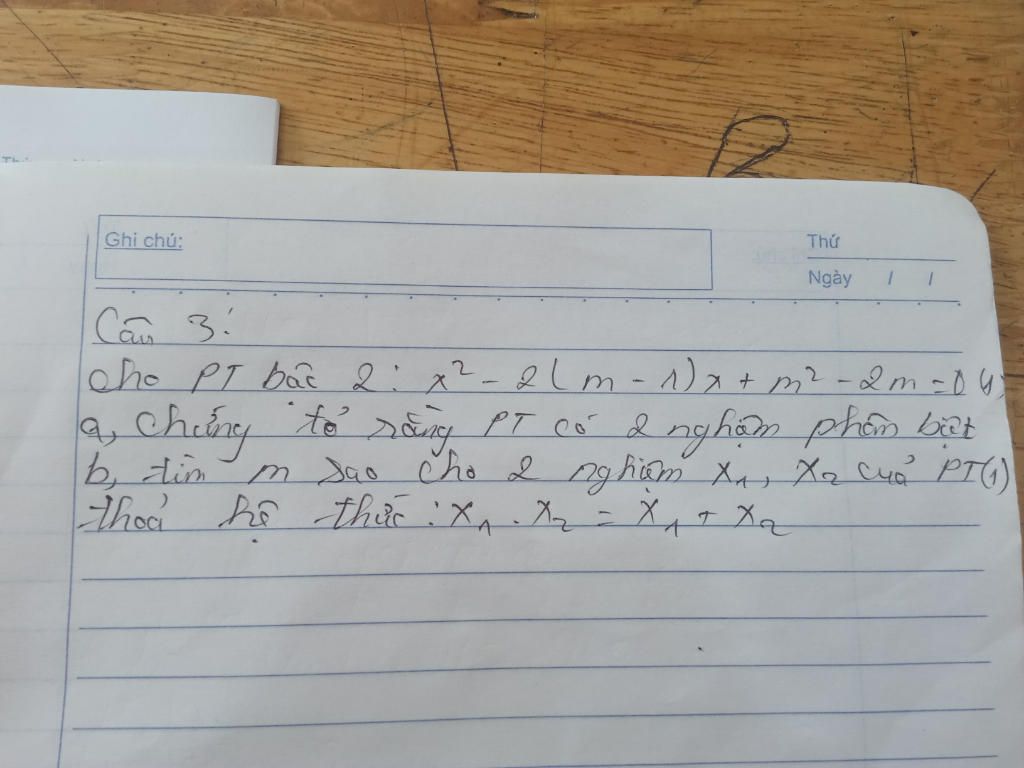 Ghi chú:
Thứ
Ngày / /
Câu 3:
Cho PT bậc 2: x² - 2(m - 1)x + m² - 2m = 0 (1)
a, Chứng tỏ rằng PT có 2 nghiệm phân biệt
b, tìm m sao cho 2 nghiệm x₁, x₂ của PT(1)
thoả hệ thức: x₁ . x₂ = x₁ + x₂